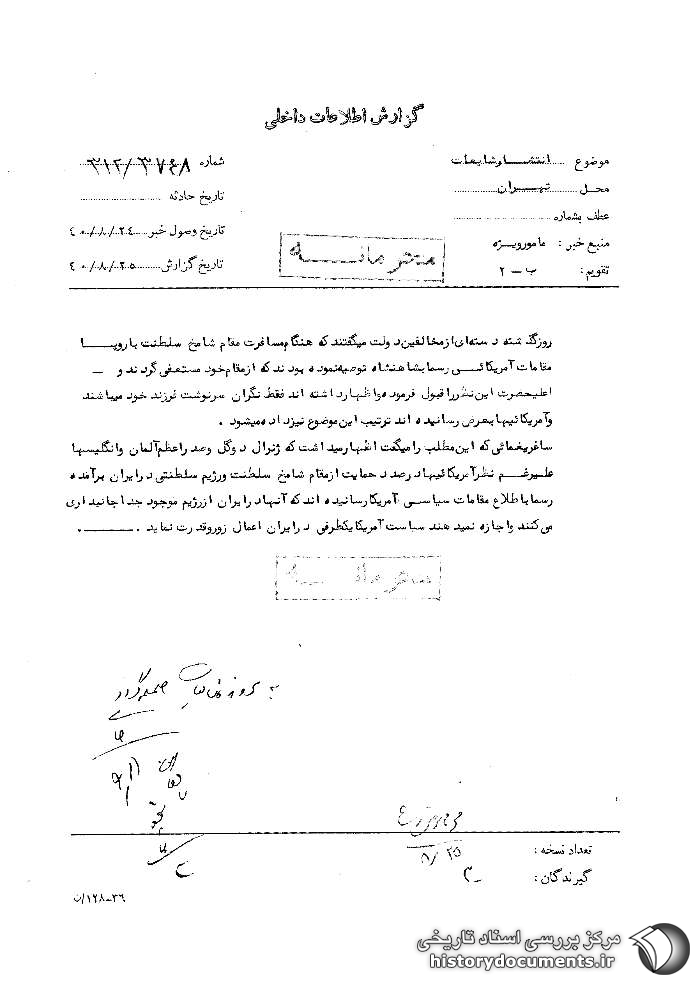 گزارش اطلاعات داخلی
موضوع ..... انتشار شایعات
شماره ۳۱۲/۳۷۶۸
محل ..... تهران
تاریخ حادثه
عطف بشماره
تاریخ وصول خبر ..... ۴۰/۸/۲۴
منبع خبر : مامورویژه
تاریخ گزارش ..... ۴۰/۸/۲۵
تقویم : ب – ۲
محرمانه
روزگذشته دسته ای از مخالفین دولت میگفتند که هنگام مسافرت مقام شامخ سلطنت باروپا
مقامات آمریکائی رسما بشاهنشاه توصیه نموده بودند که از مقام خود مستعفی گردند و –
اعلیحضرت این نظر را قبول فرموده و اظهار داشته اند فقط نگران سرنوشت فرزند خود میباشند
و آمریکائیها بعرض رسانیده اند ترتیب این موضوع نیز داده میشود .
ساغر یغمائی که این مطلب را میگفت اظهار میداشت که ژنرال دوگل و صدراعظم آلمان و انگلیسها
علیرغم نظر آمریکائیها درصدد حمایت از مقام شامخ سلطنت و رژیم سلطنتی در ایران برآمده
رسما باطلاع مقامات سیاسی آمریکا رسانیده اند که آنها در ایران از رژیم موجود جدا جانبداری
می کنند و اجازه نمیدهند سیاست آمریکا یکطرفی در ایران اعمال زور و قدرت نماید .
محرمانه
تعداد نسخه :
۸/۲۵
گیرندگان :
۳۶–۱۲۸/ن
مرکز بررسی اسناد تاریخی
historydocuments.ir